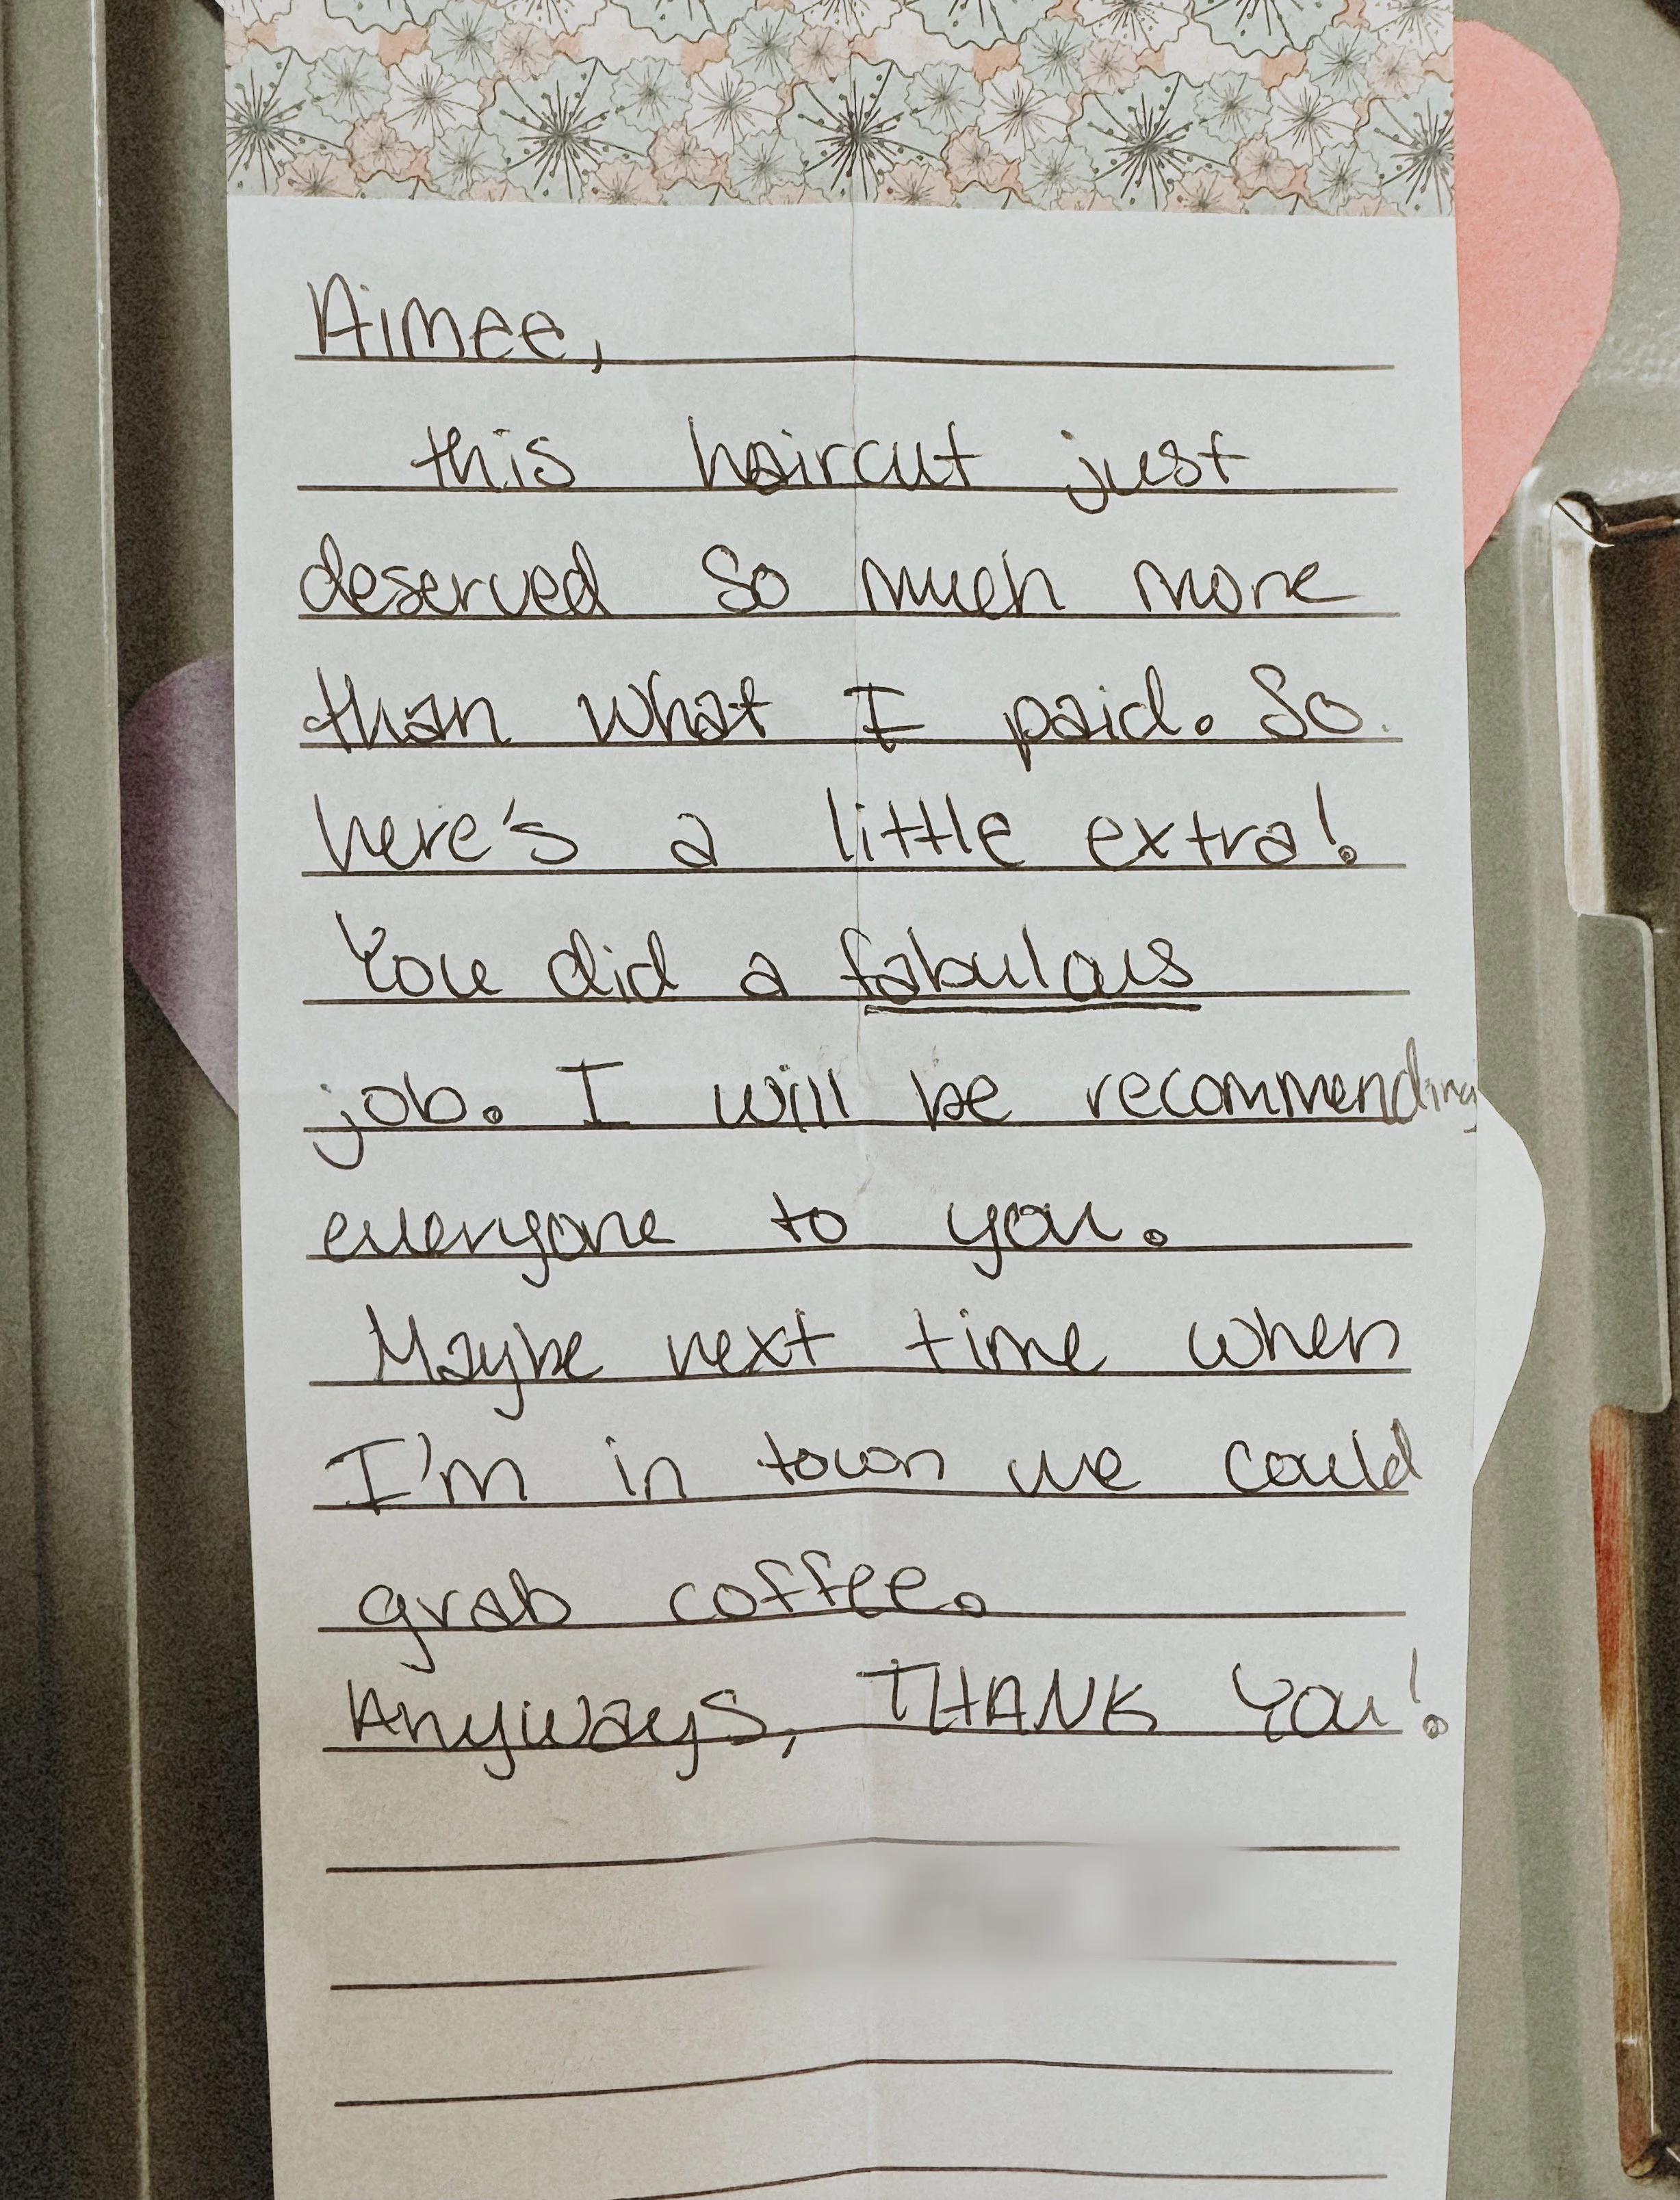 Aimee,
this haircut just
deserved so much more
than what I paid. So
here's a little extra!
You did a fabulous
job. I will be recommending
everyone to you.
Maybe next time when
I'm in town we could
grab coffee.
Anyways, THANK You!